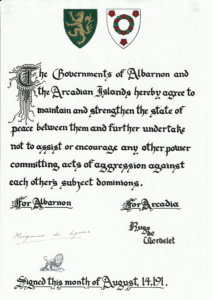 The Governments of Albarnon and
the Arcadian Islands hereby agree to
maintain and strengthen the state of
peace between them and further undertake
not to assist or encourage any other power
committing acts of aggression against
each others subject dominions.
For Albarnon
For Arcadia
Hugo
de
Werbelet
Signed this month of August, 14.191.